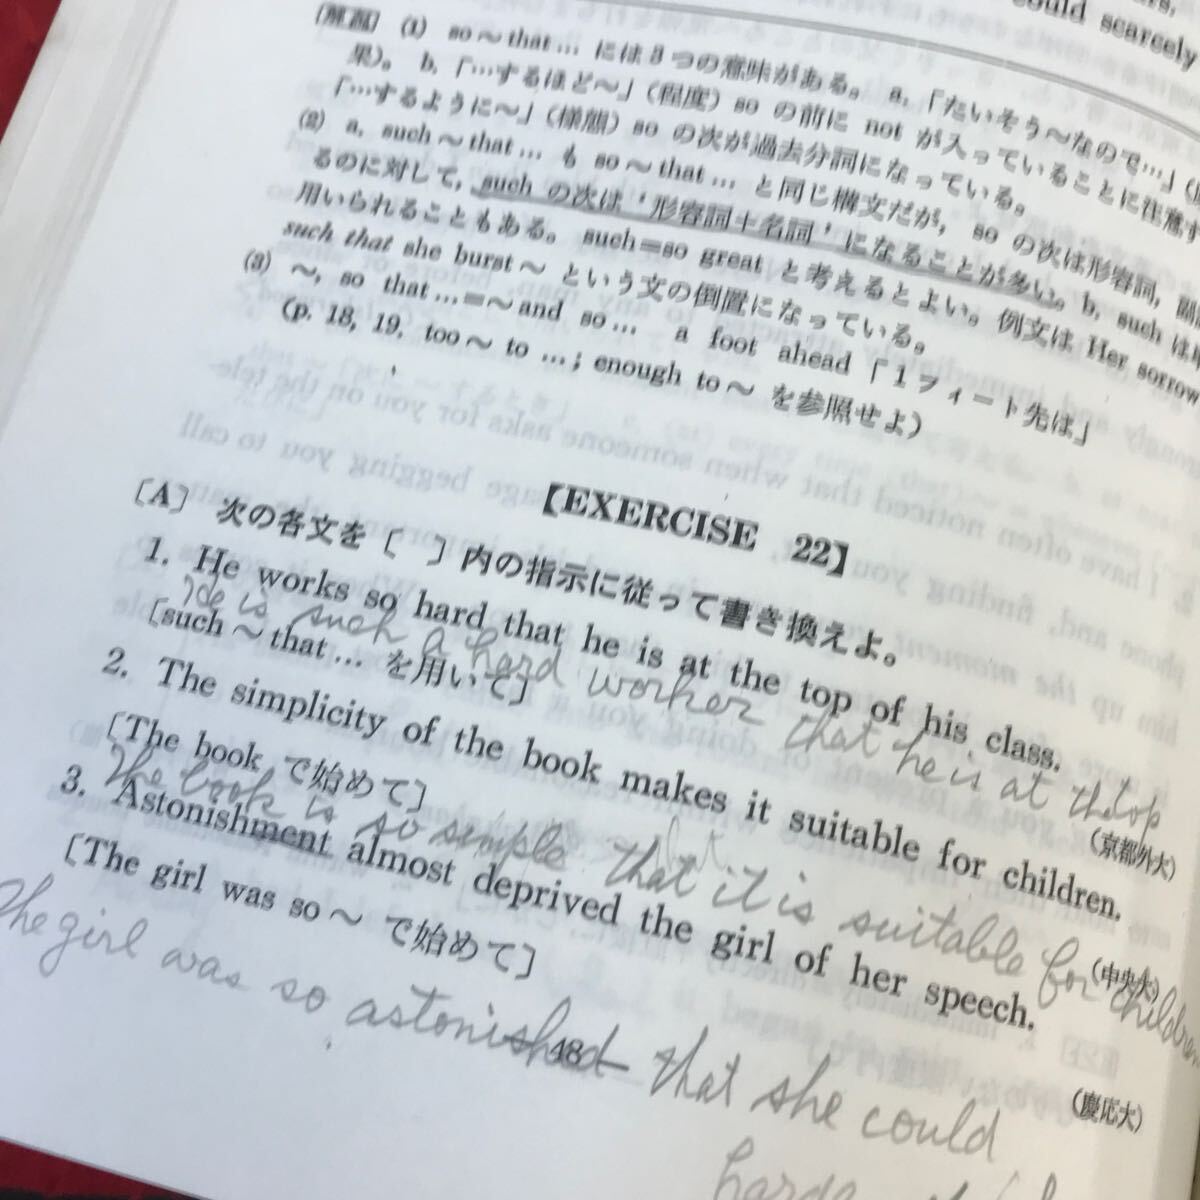 could scarcely
〔解説〕 (1) so～that… には3つの意味がある。 a.「たいそう～なので…」(
果)。 b.「…するほど～」(程度) so の前に not が入っていることに注意す
「…するように～」(様態) so の次が過去分詞になっている。
(2) a. such～that… も so～that… と同じ構文だが, so の次は形容詞, 副
るのに対して, such の次は ‘形容詞+名詞’ になることが多い。 b. such は
用いられることもある。 such=so great と考えるとよい。例文は Her sorrow
such that she burst～ という文の倒置になっている。
(3) ～, so that…=～and so… a foot ahead 「1フィート先は」
(p. 18, 19, too～to…; enough to～ を参照せよ)
【EXERCISE 22】
〔A〕 次の各文を〔 〕内の指示に従って書き換えよ。
1. He works so hard that he is at the top of his class.
He is such a hard worker that he is at the top
〔such～that… を用いて〕
(京都外大)
2. The simplicity of the book makes it suitable for children.
〔The book で始めて〕
The book is so simple that it is suitable for children
(中央大)
3. Astonishment almost deprived the girl of her speech.
〔The girl was so～ で始めて〕
(慶応大)
The girl was so astonished that she could
48